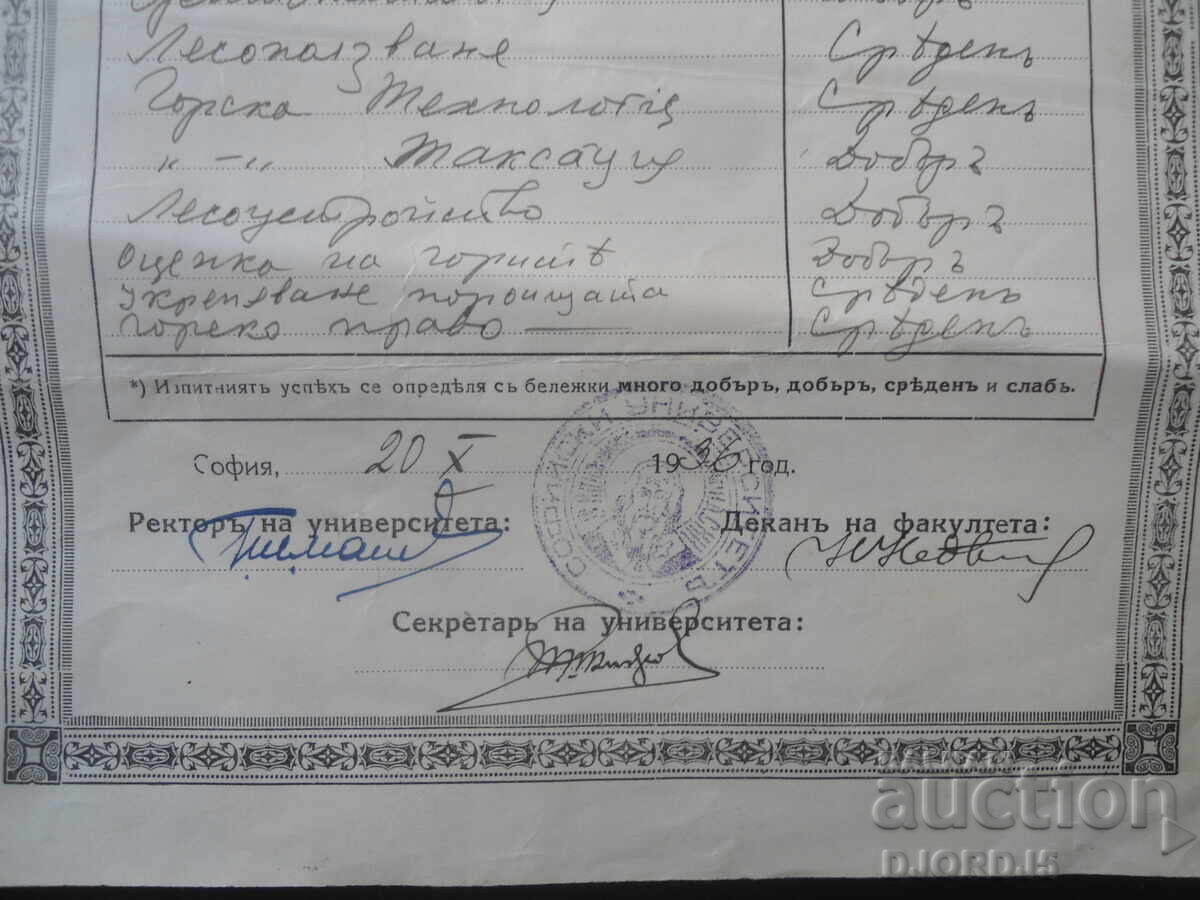 Лесоползване Срѣденъ
Горска Технология Срѣденъ
" -"- Таксация Добъръ
Лесоустройство Добъръ
Оценка на горитѣ Добъръ
Укрепяване пороищата Срѣденъ
Горско право — Срѣденъ
*) Изпитниятъ успѣхъ се опредѣля съ бележки много добъръ, добъръ, срѣденъ и слабъ.
София, 20 X 1936 год.
Ректоръ на университета: Деканъ на факултета:
СОФИЙСКИ УНИВЕРСИТЕТЪ
Секретарь на университета:
auction
DJORDJ5